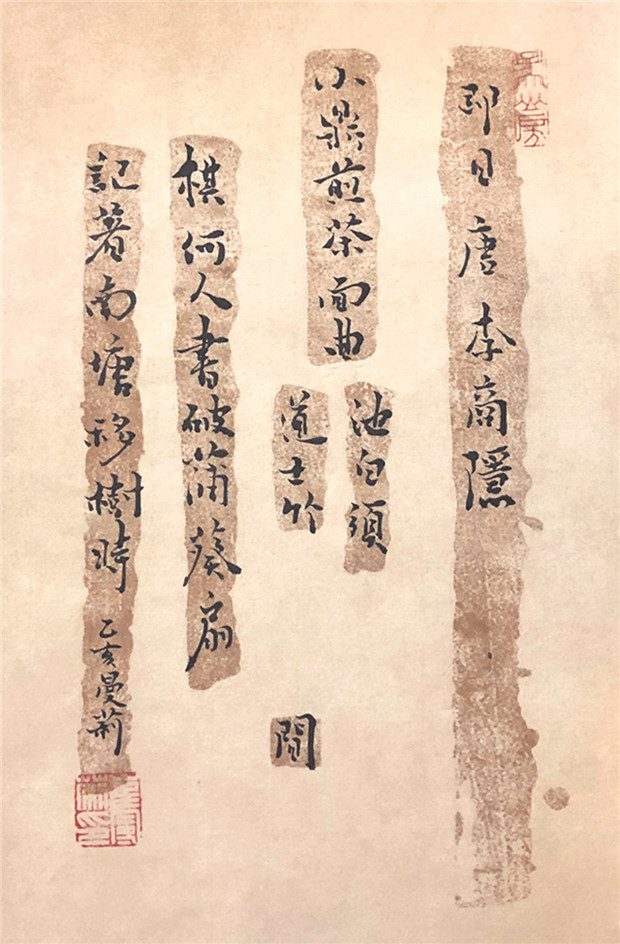 即目唐李商隱
小鼎煎茶面曲
池白須
道士竹
間
棋何人書破蒲葵扇
記著南塘移樹時
乙亥曼莉